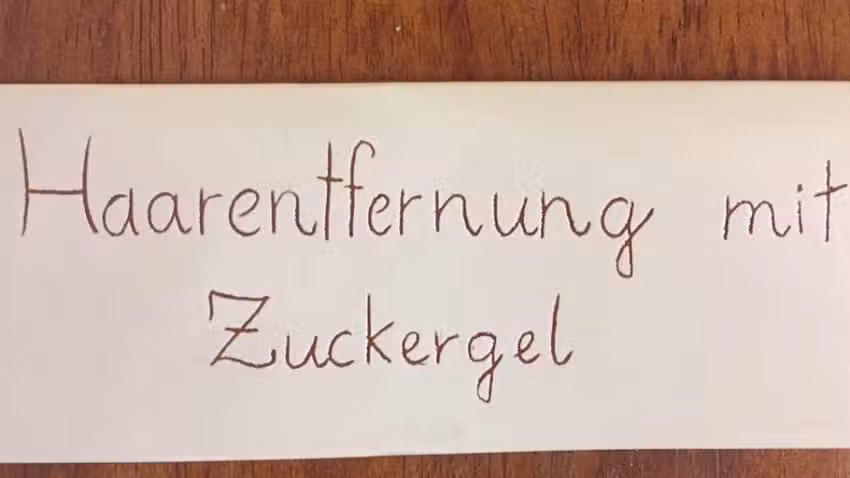 Haarentfernung mit
Zuckergel